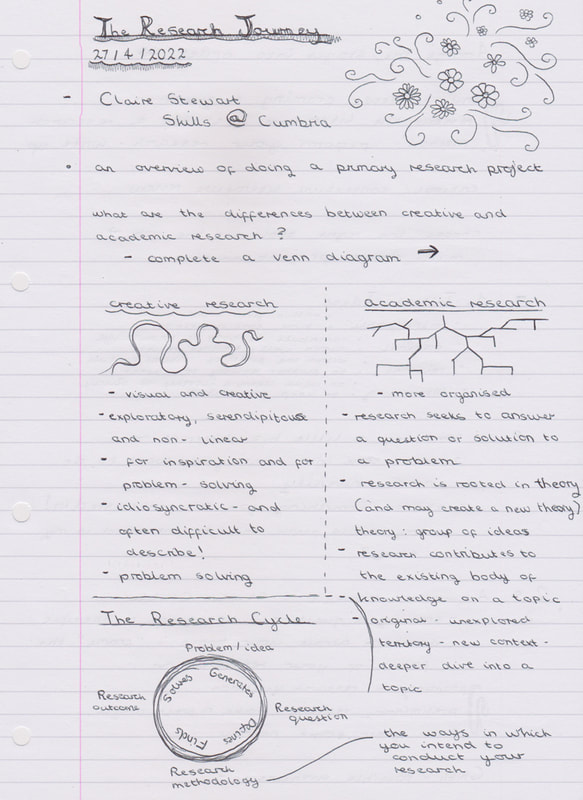 The Research Journey
27/4/2022
- Claire Stewart
Skills @ Cumbria
• an overview of doing a primary research project
what are the differences between creative and
academic research?
- complete a venn diagram →
creative research
- visual and creative
- exploratory, serendipitous
and non-linear
- for inspiration and for
problem-solving
- idiosyncratic - and
often difficult to
describe!
- problem solving
academic research
- more organised
- research seeks to answer
a question or solution to
a problem
- research is rooted in theory
(and may create a new theory)
theory: group of ideas
- research contributes to
the existing body of
knowledge on a topic
- original - unexplored
territory - new context -
deeper dive into a
topic
The Research Cycle
Problem/idea
Generates
Research
question
Defines
Research
methodology
Finds
Research
outcome
Solves
the ways in which
you intend to
conduct your
research